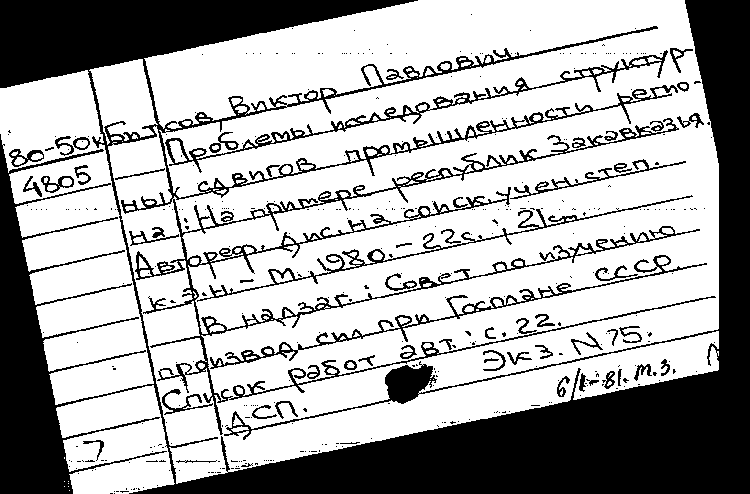 80-50к
4805
Битков, Виктор Павлович.
Проблемы исследования структур-
ных сдвигов промышленности регио-
на : На примере республик Закавказья.
Автореф. дис. на соиск. учен. степ.
к.э.н. - М., 1980. - 22с. ; 21см.
В надзаг. : Совет по изучению
производ. сил при Госплане СССР.
Список работ авт. : с. 22.
ДСП. Экз. N 75.
6/I-81. т.з.
7